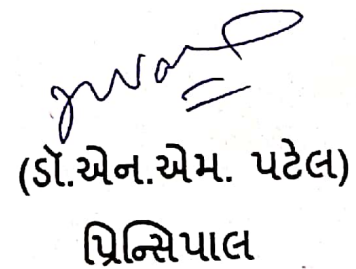 (ડૉ.એન.એમ. પટેલ)
પ્રિન્સિપાલ